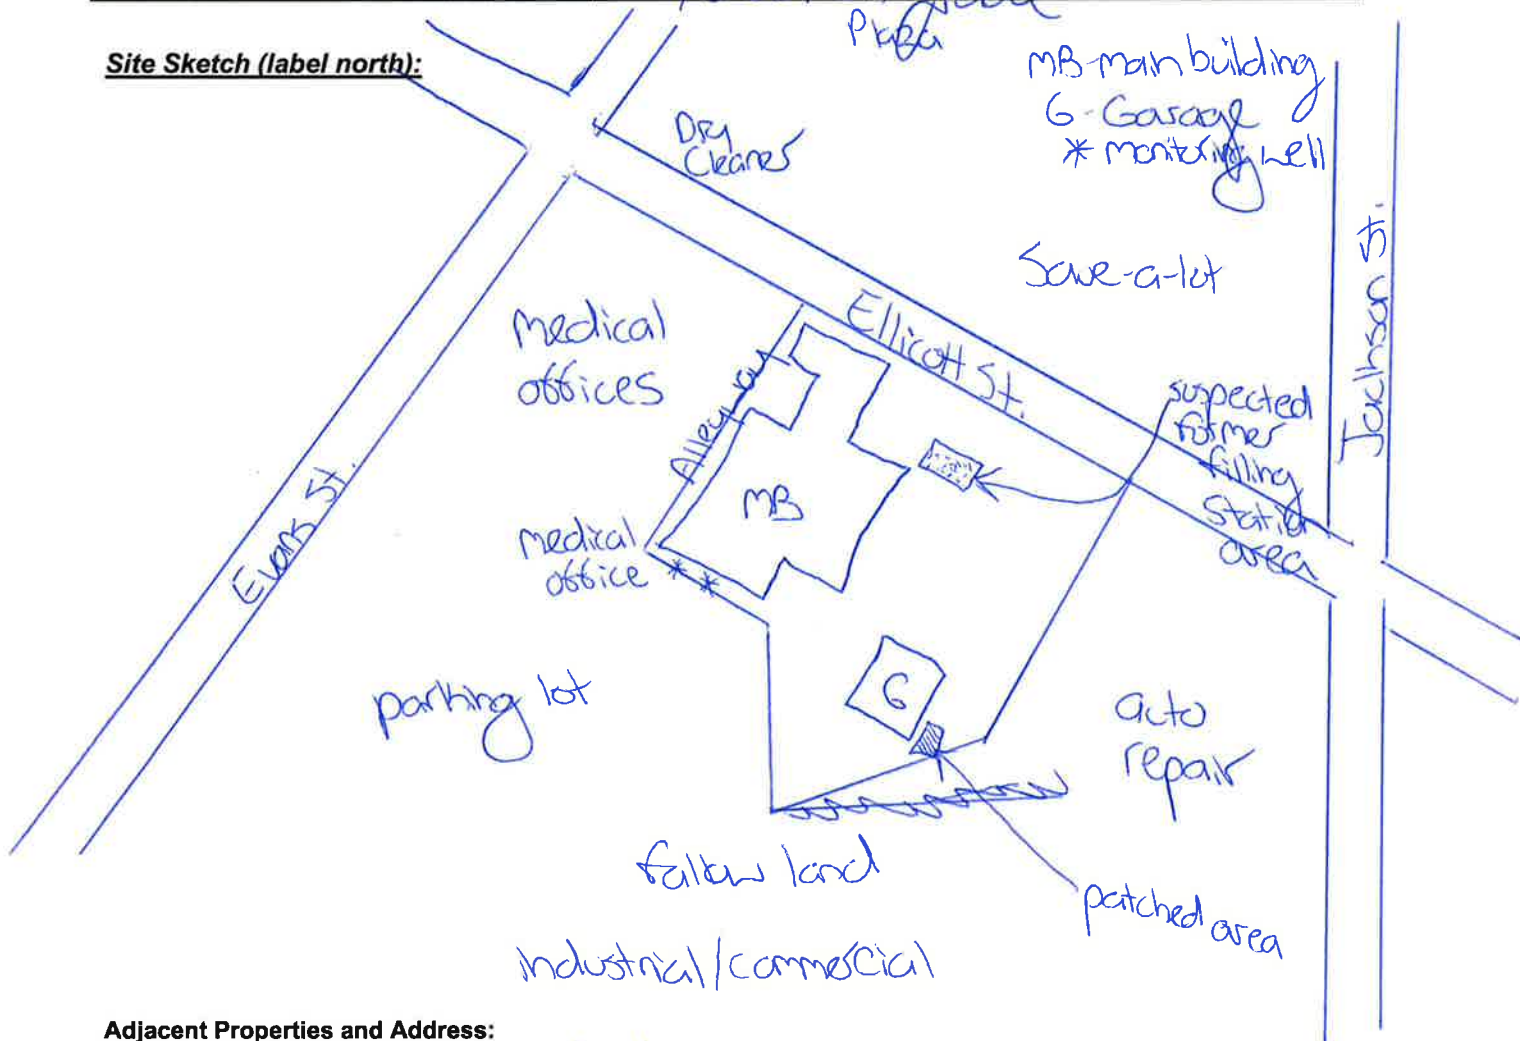 Plaza
Site Sketch (label north):
MB-main building
G-Garage
* monitoring well
Dry
Cleaner
Save-a-lot
Medical
offices
Ellicott St.
Jackson St.
Alleyway
suspected
former
filling
station
area
MB
Evans St.
medical
office
* *
parking lot
G
auto
repair
fallow land
patched area
industrial/commercial
Adjacent Properties and Address: